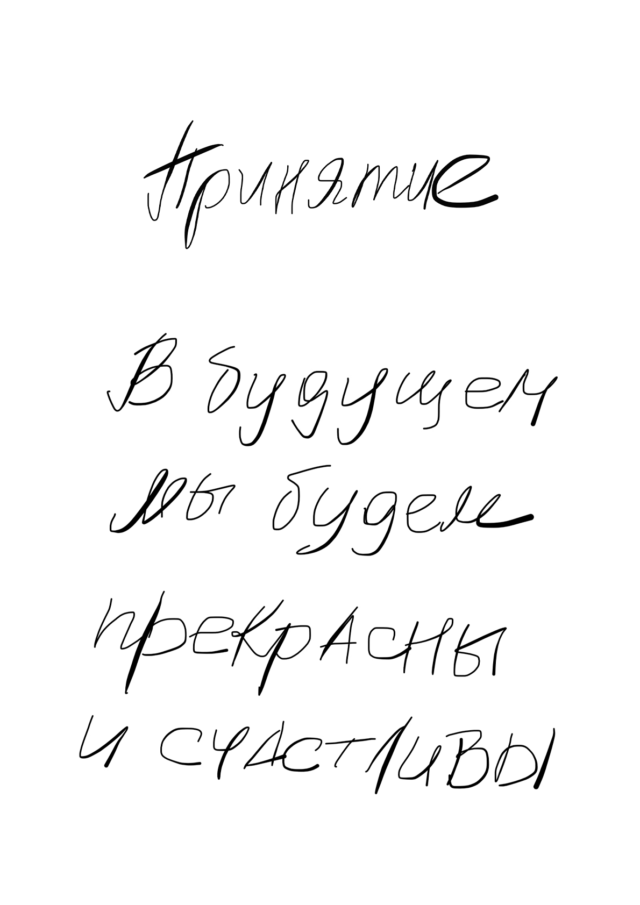 Принятие
В будущем
мы будем
прекрасны
и счастливы